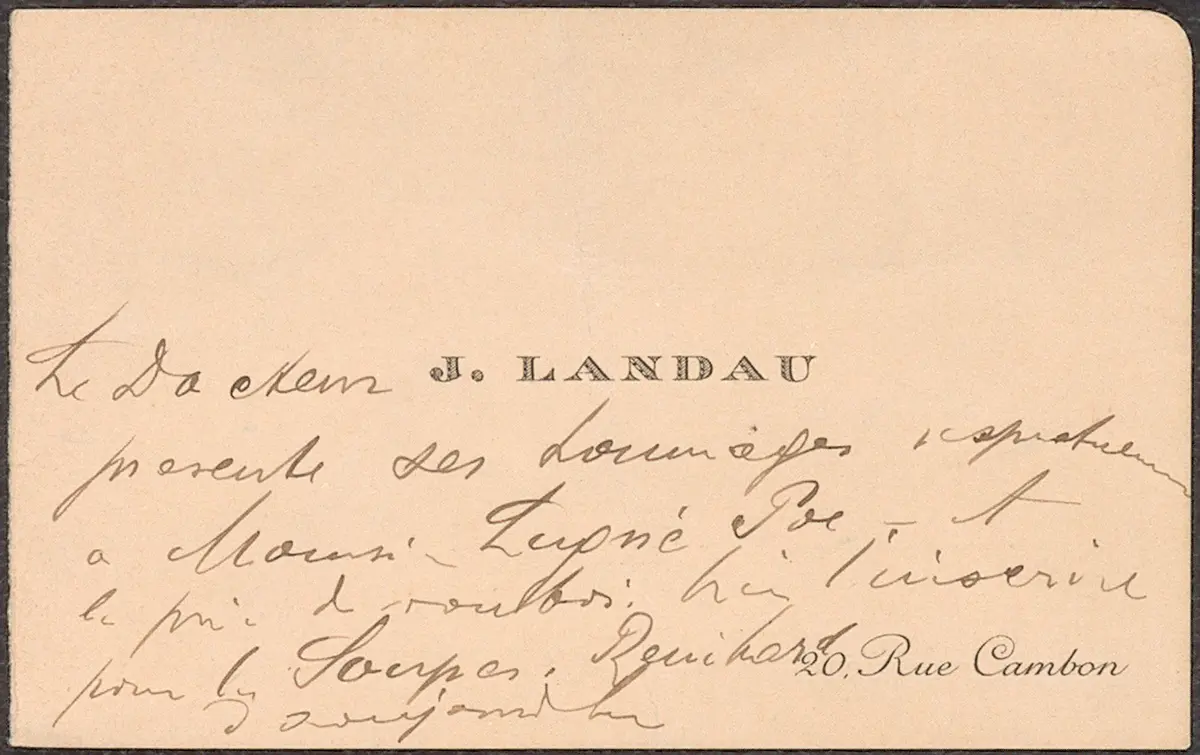 Le Docteur J. LANDAU
presente ses hommages respectueux
a Monsi Lugné Poe - et
le prie de vouloir bien l'inscrire
pour le Souper Reinhard
20, Rue Cambon
d'aujourd'hui